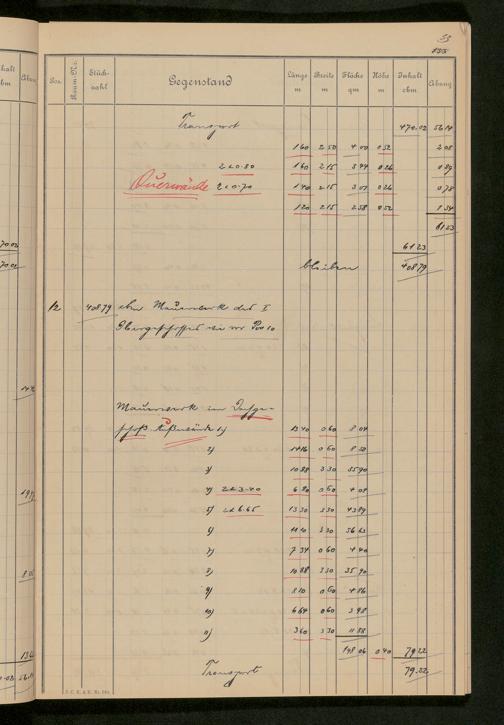 53
133
Pos. Raum-Nr. Stück-zahl Gegenstand Länge m Breite m Fläche qm Höhe m Inhalt cbm Abzug
Transport 470.02 56.14
1 60 2 50 4 00 0 52 2 08
2x0.80 1 60 2 15 3 44 0 26 0 89
Querwände 2x0.70 1 40 2 15 3 01 0 26 0 78
1 20 2 15 2 58 0 52 1 34
61 23
61 23
bleiben 408 79
12 408 79 cbm Mauerwerk des I
Obergeschosses wie vor Pos 10
Mauerwerk im Dachge-
schoß. Außenwände 1) 13 40 0 60 8 04
2) 14 16 0 60 8 50
3) 10 88 3 30 35 90
4) 2x3.40 6 80 0 60 4 08
5) 2x6.65 13 30 3 30 43 89
6) 11 10 3 30 36 63
7) 7 34 0 60 4 40
8) 10 88 3 30 35 90
9) 8 10 0 60 4 86
10) 6 64 0 60 3 98
11) 3 60 3 30 11 88
198 06 0 40 79 22
Transport 79.22